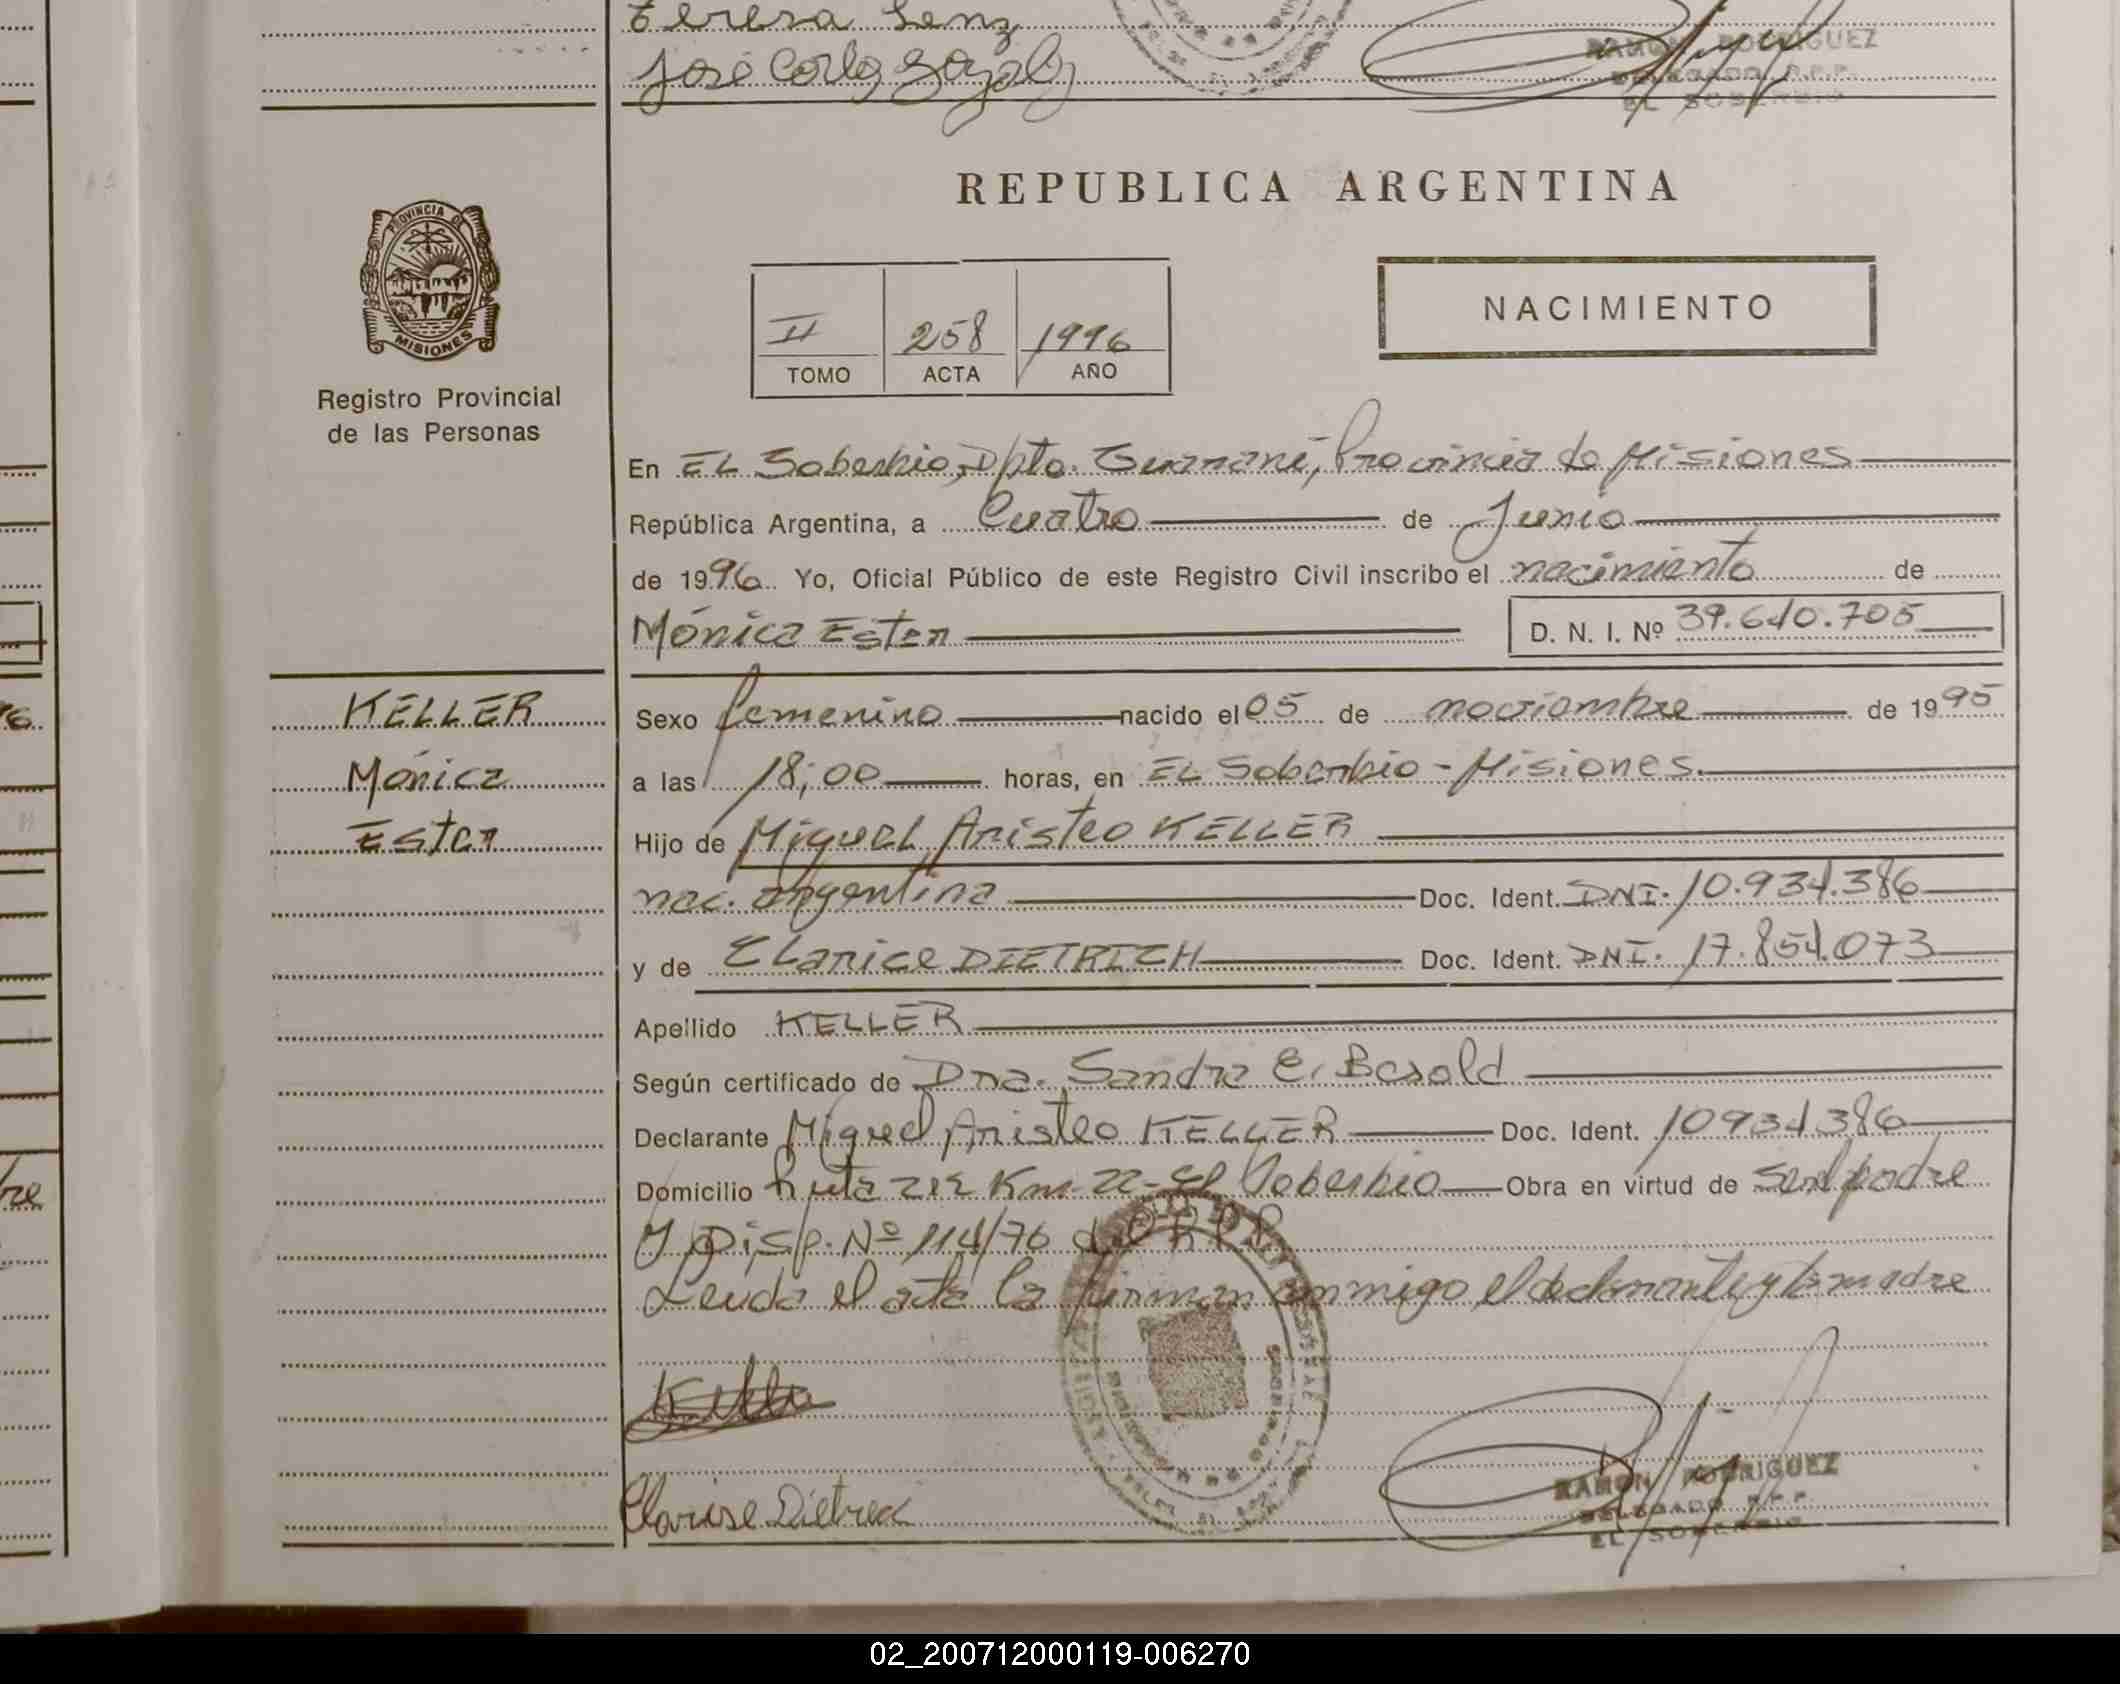 Teresa Lenz
José Carlos
RAMON RODRIGUEZ
DELEGADO R.P.P.
EL SOBERBIO
REPUBLICA ARGENTINA
PROVINCIA DE
MISIONES
Registro Provincial
de las Personas
II 258 1996
TOMO ACTA AÑO
NACIMIENTO
En EL Soberbio, Dpto. Guaraní, Provincia de Misiones
República Argentina, a Cuatro de Junio
de 1996 Yo, Oficial Público de este Registro Civil inscribo el nacimiento de
Mónica Ester D. N. I. Nº 39.640.705
KELLER
Mónica
Ester
Sexo femenino nacido el 05 de noviembre de 1995
a las 18;00 horas, en EL Soberbio - Misiones.
Hijo de Miguel Aristeo KELLER
nac. argentina Doc. Ident. DNI. 10.934.386
y de Clarice DIETRICH Doc. Ident. DNI. 17.854.073
Apellido KELLER
Según certificado de Dra. Sandra E. Besold
Declarante Miguel Aristeo KELLER Doc. Ident. 10934386
Domicilio Ruta 212 Km-22-El Soberbio Obra en virtud de ser el padre
y Disp. Nº 114/76 d.G.R.P.P.
Leida el acta la firman conmigo, el declarante y la madre
Keller
Clarise Dietrich
RAMON RODRIGUEZ
DELEGADO R.P.P.
EL SOBERBIO
02_200712000119-006270